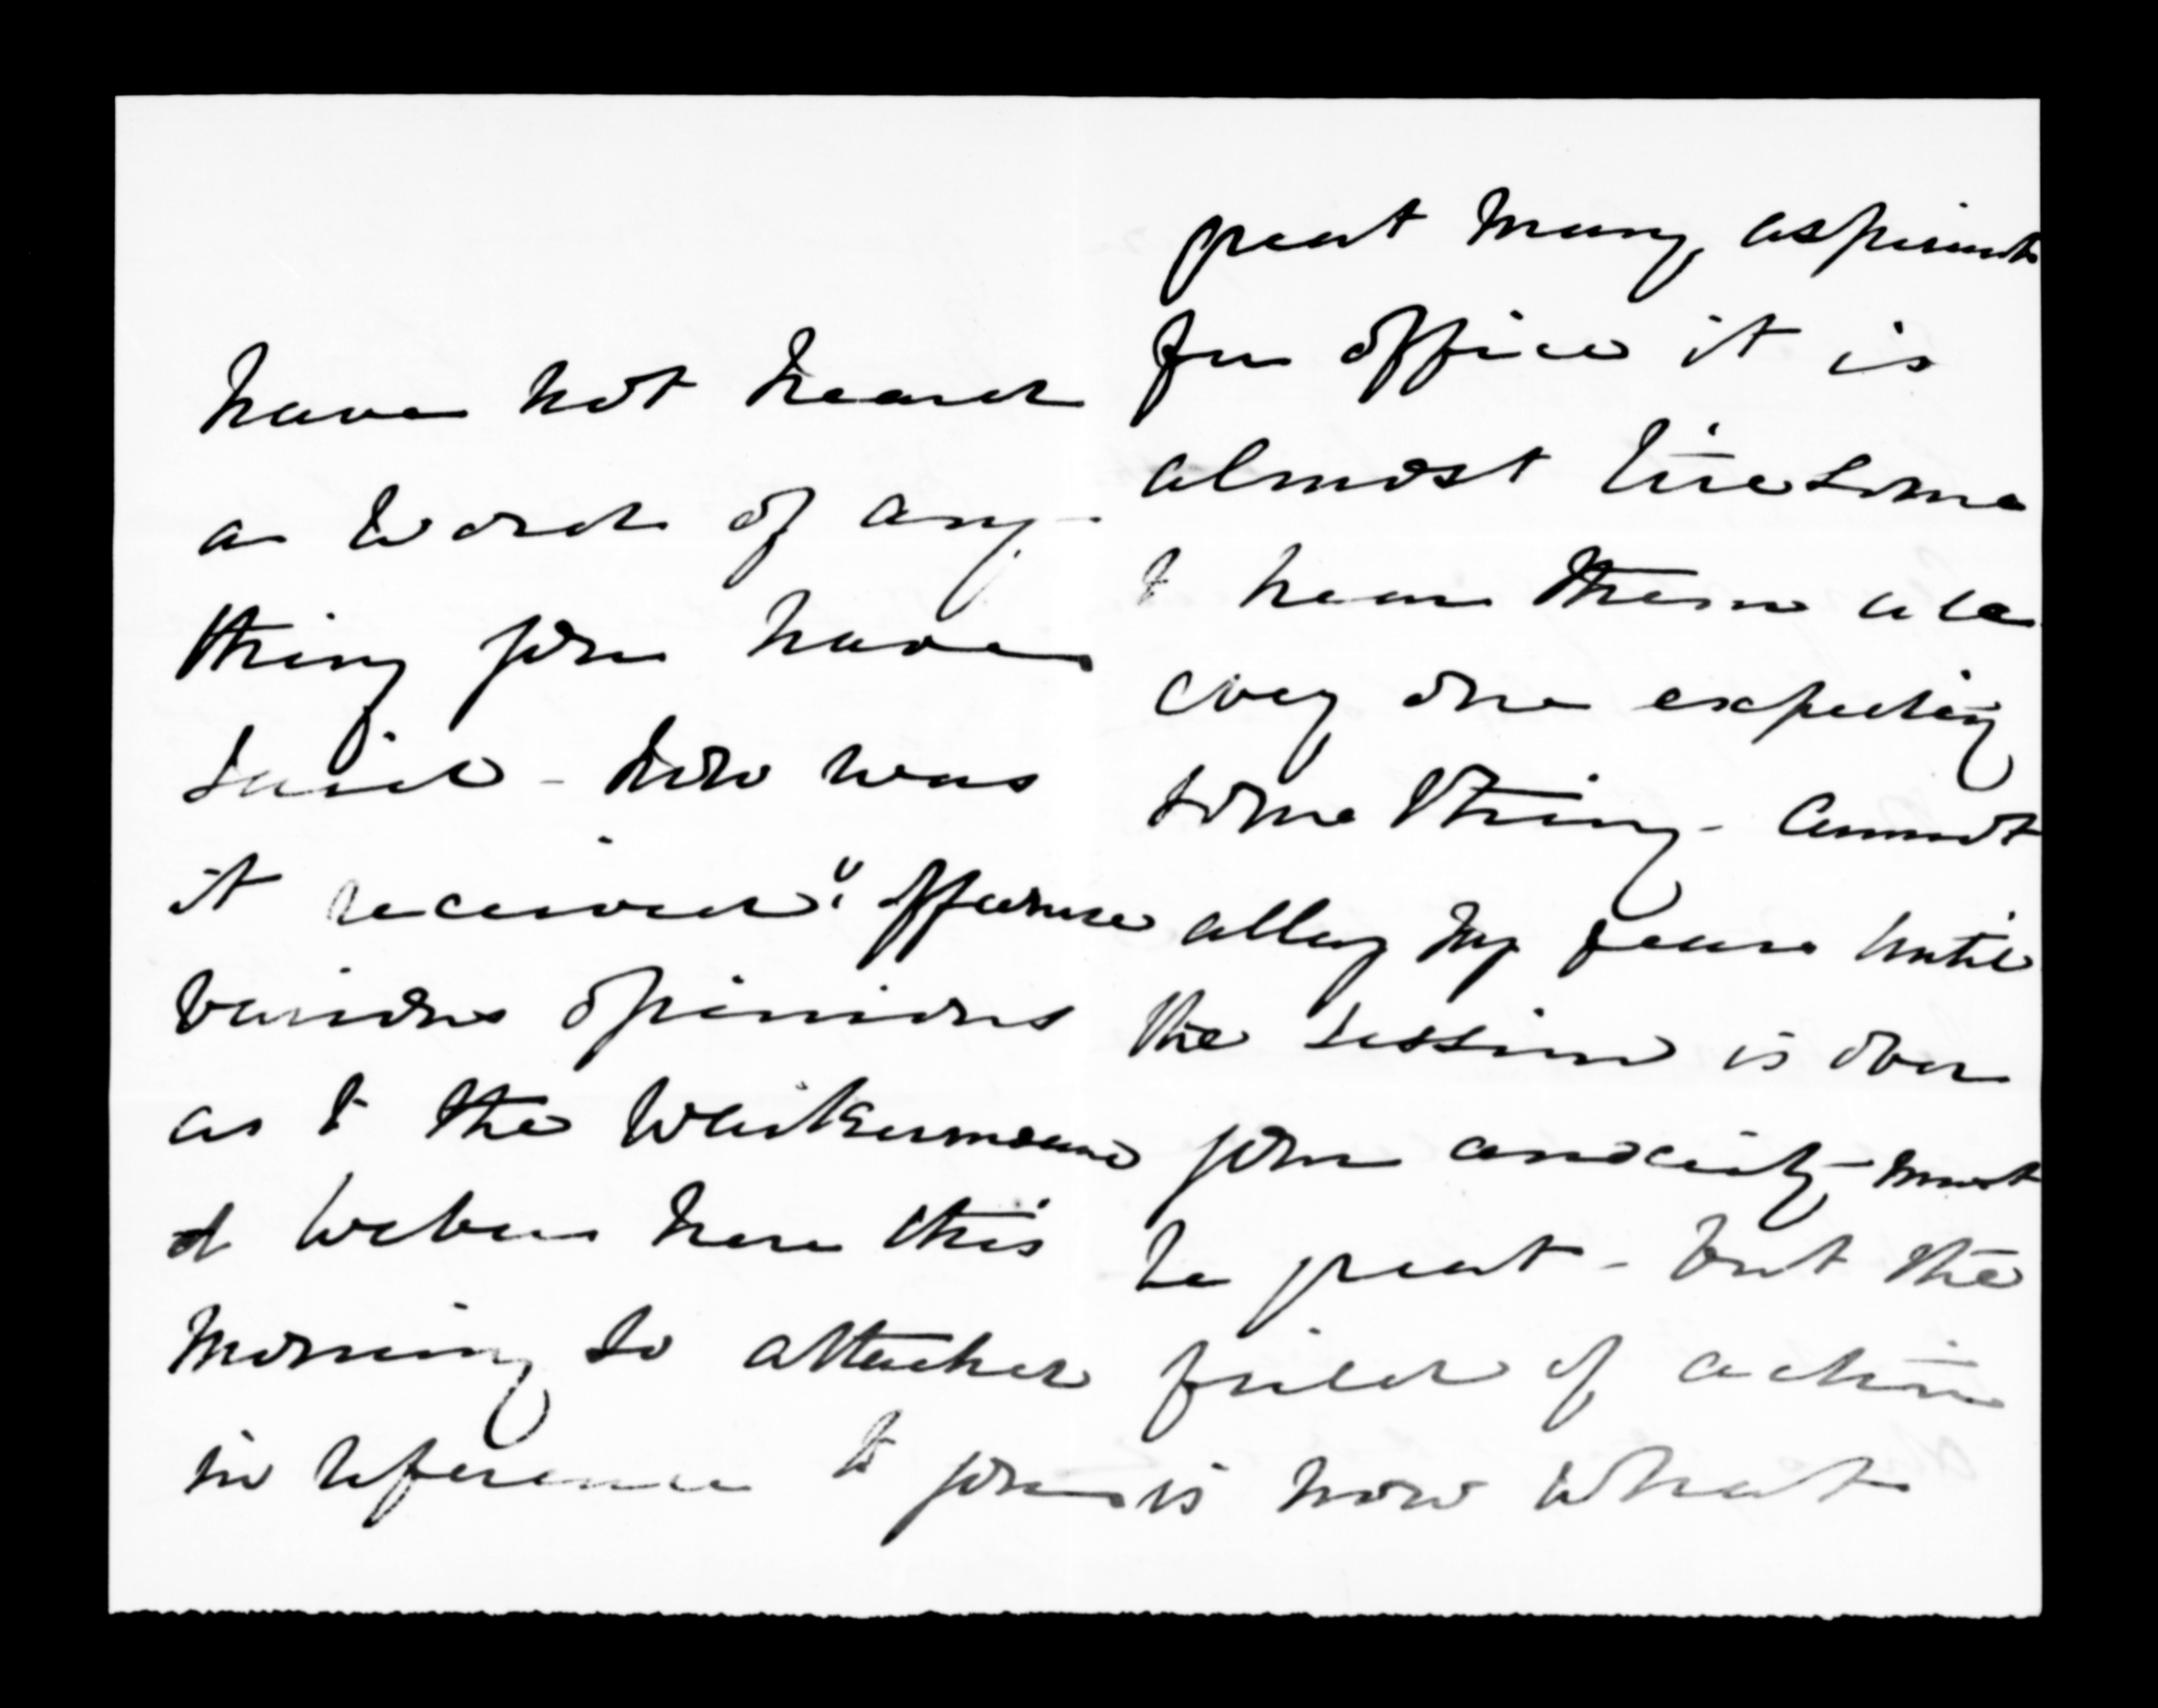 have not heard
a word of any-
thing you have
said - how was
it received"! offcourse
various opinions
as to the Waikeromeane
Weber here this
morning so attached
in reference to you
great many aspirants
for office it is
almost tiresome
to hear them all
every one expecting
something - Cannot
allay my fears until
the session is over
your anxiety - must
be great - but the
feild of action
is now what